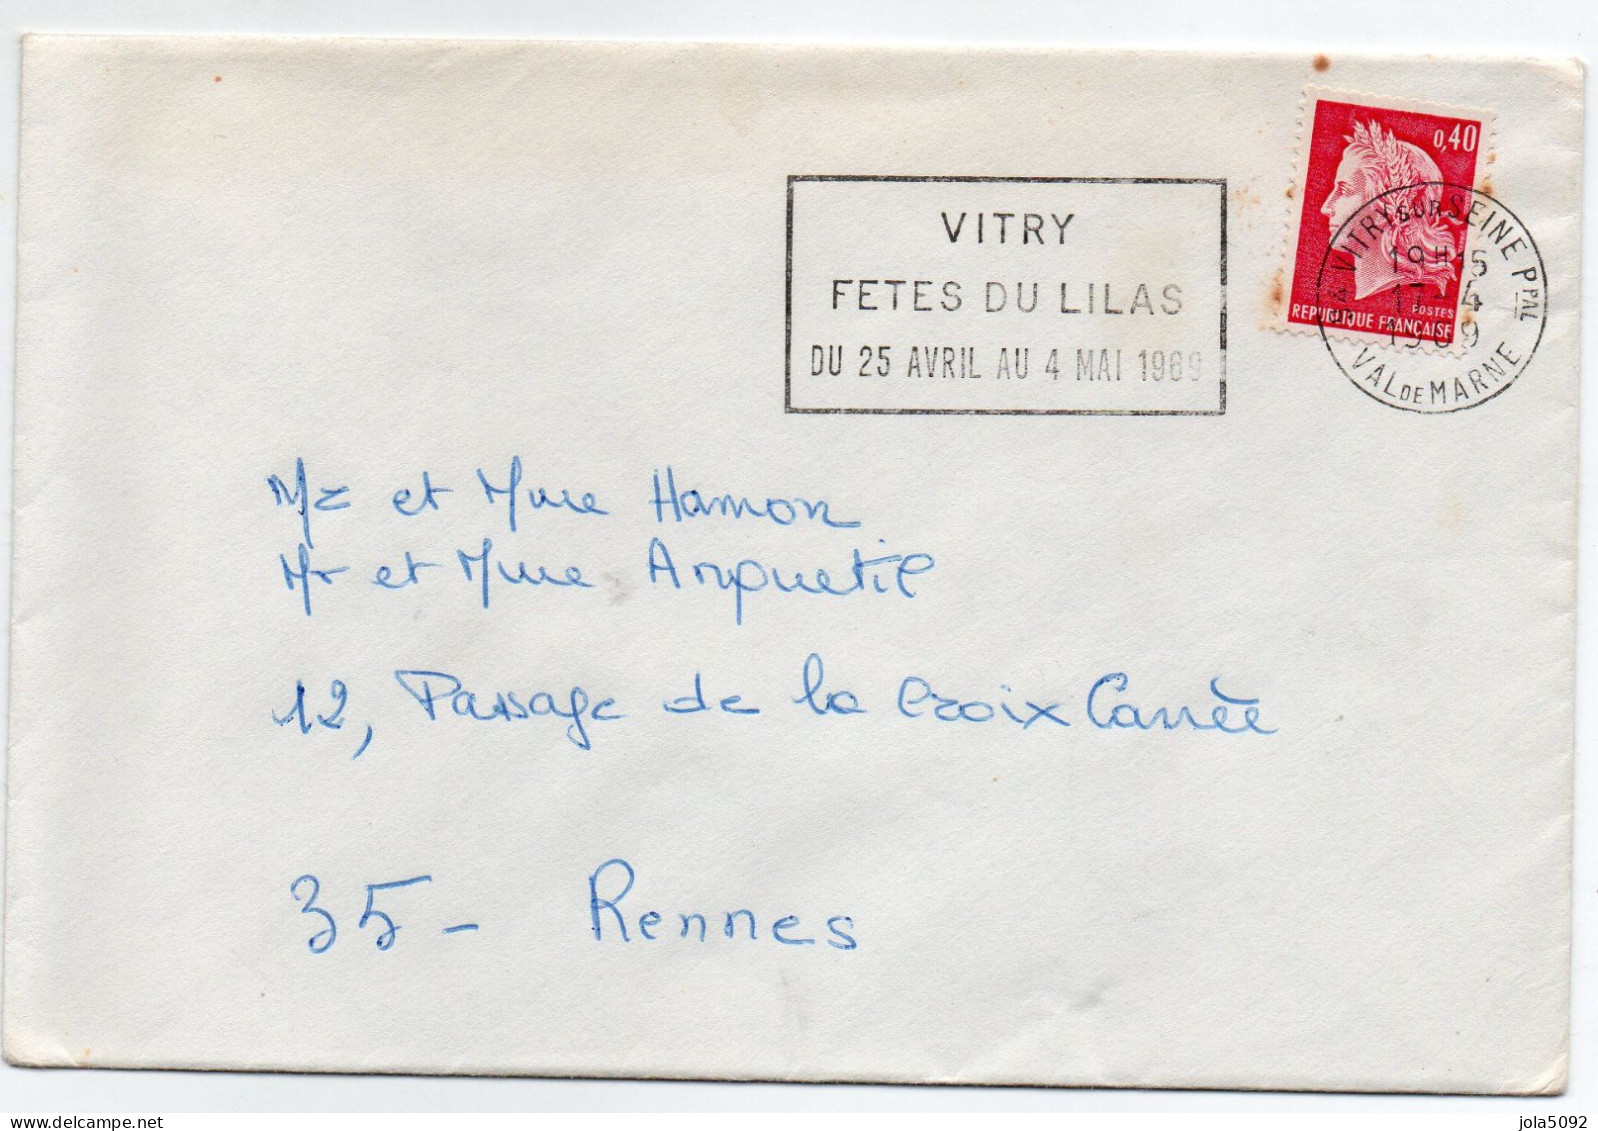 0,40
POSTES
REPUBLIQUE FRANÇAISE
94 VITRY SUR SEINE PPAL
19H15
17-4
1969
VAL DE MARNE
VITRY
FETES DU LILAS
DU 25 AVRIL AU 4 MAI 1969
Mr et Mme Hamon
Mr et Mme Anquetil
12, Passage de la Croix Carrée
35 - Rennes
jola5092